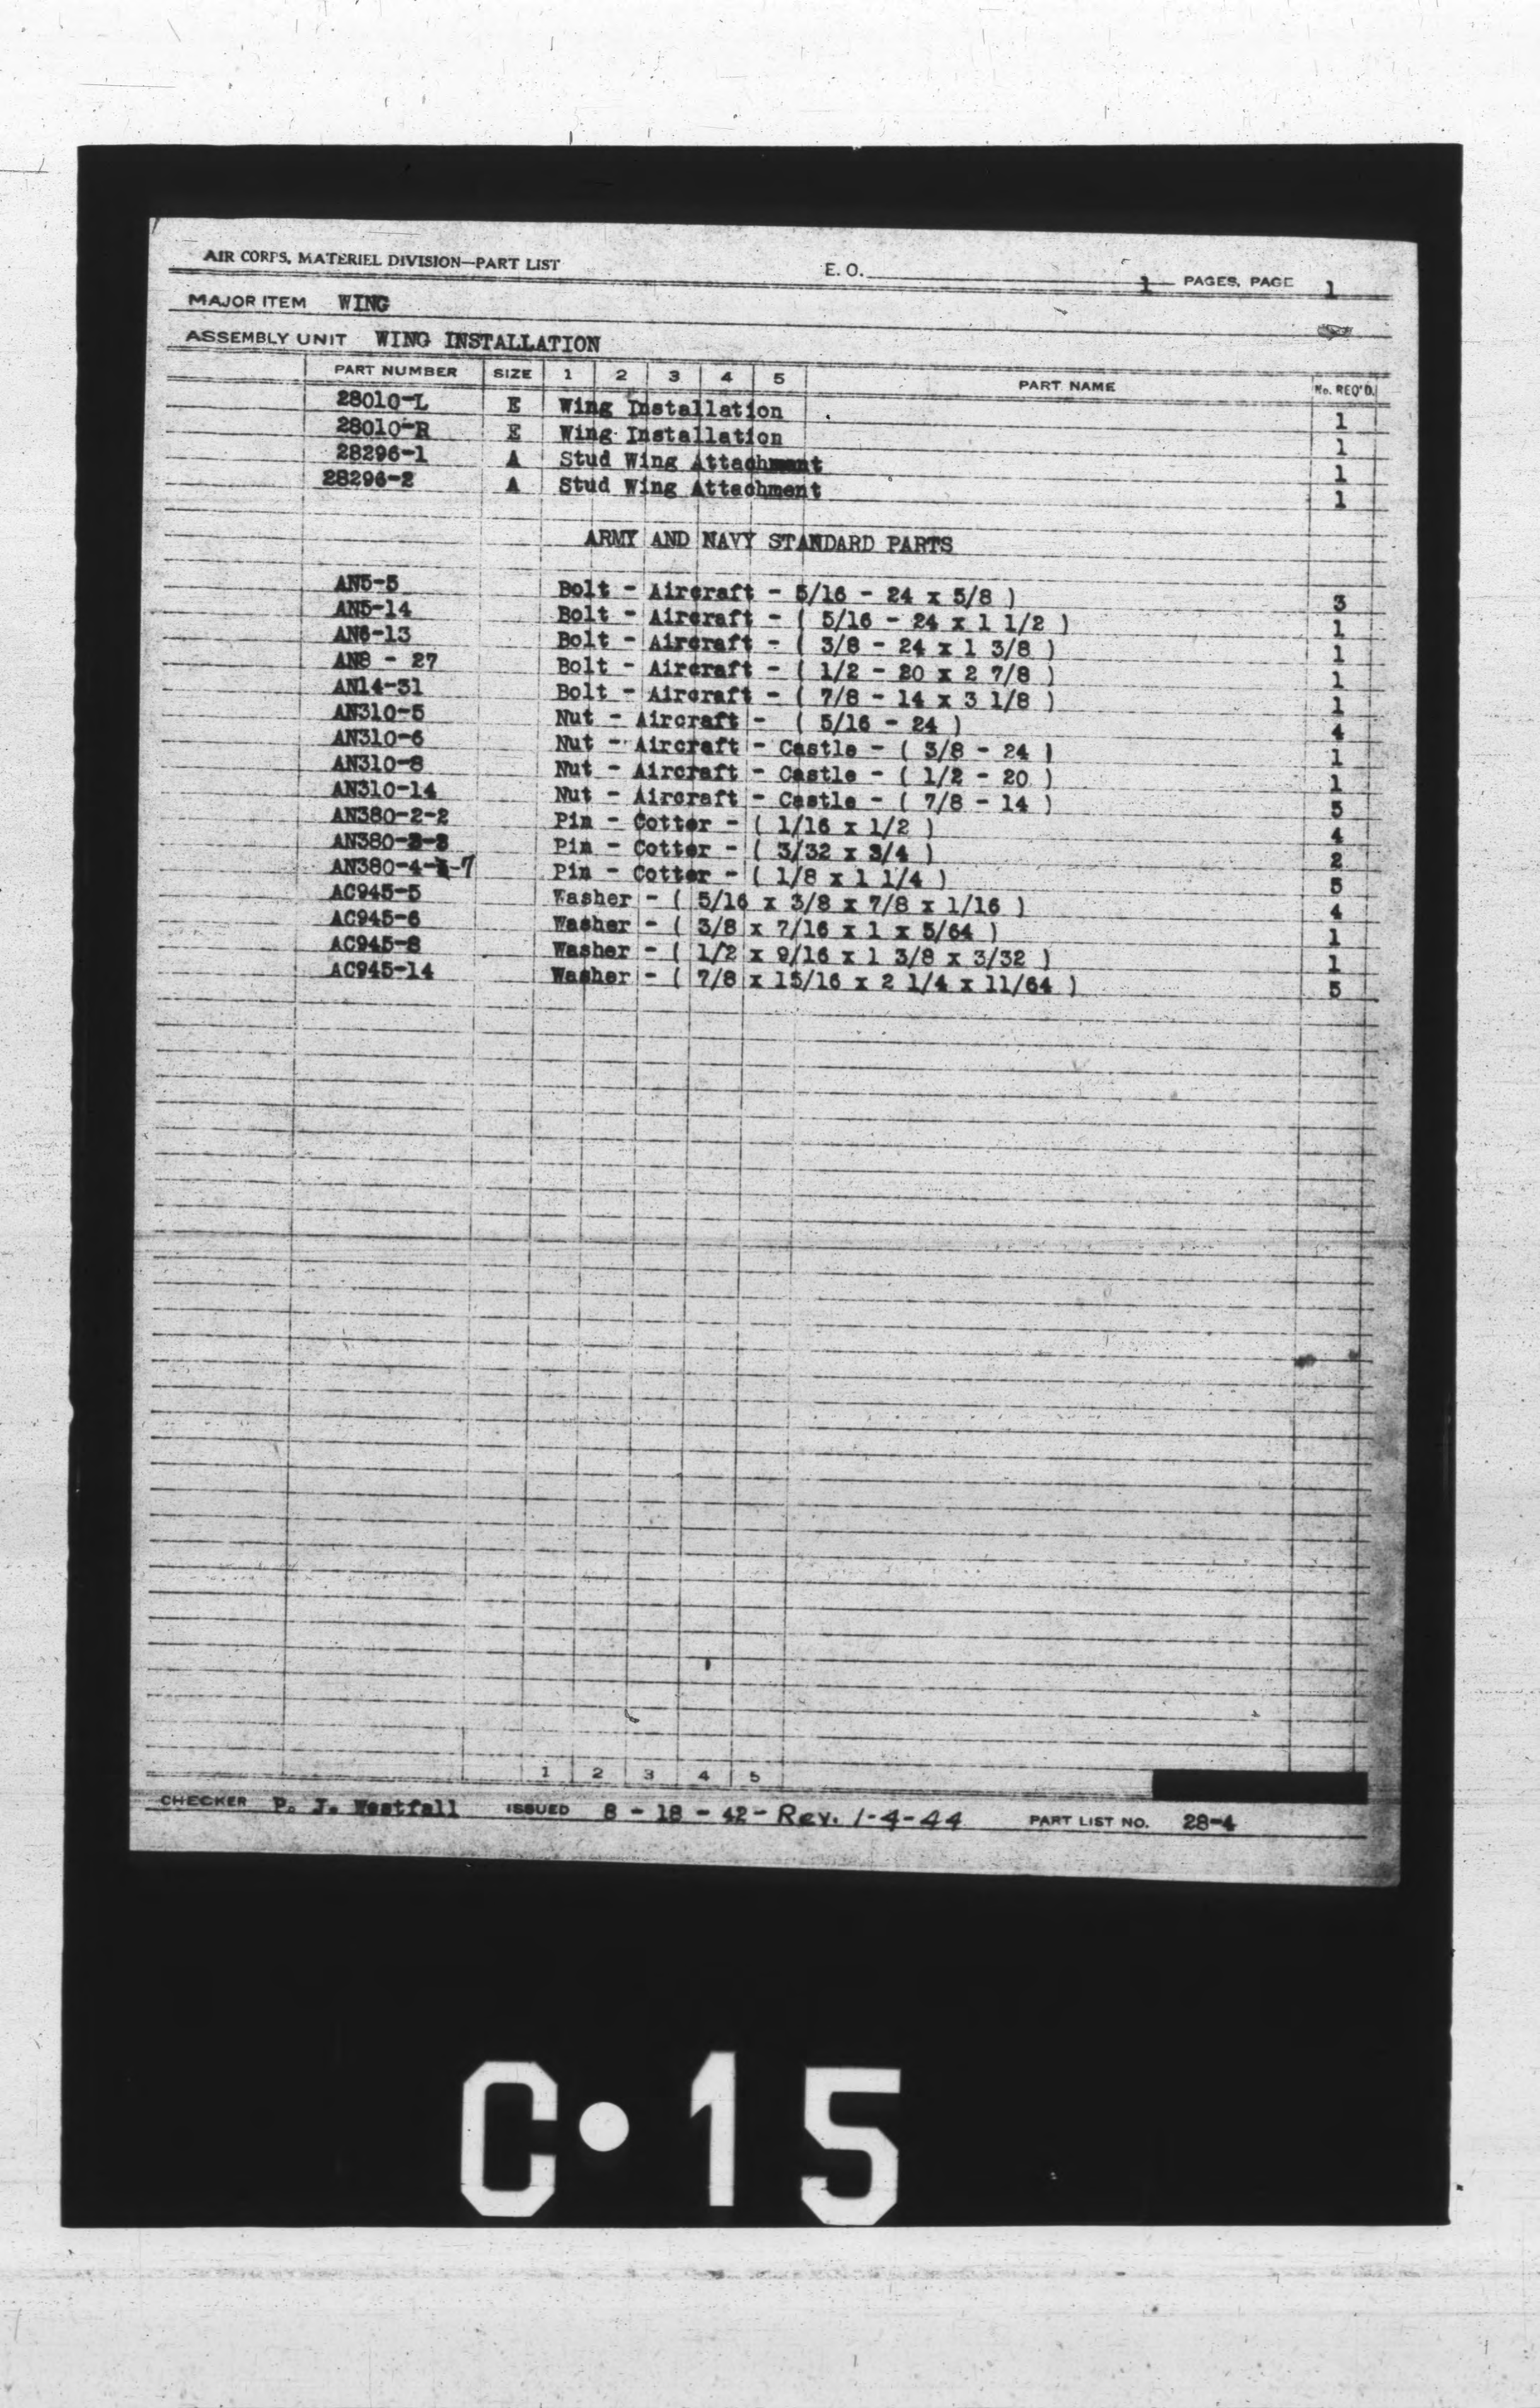 AIR CORPS, MATERIEL DIVISION—PART LIST E. O. 1 PAGES, PAGE 1
MAJOR ITEM WING
ASSEMBLY UNIT WING INSTALLATION
PART NUMBER SIZE 1 2 3 4 5 PART NAME No. REQ'D.
28010-L E Wing Installation 1
28010-R E Wing Installation 1
28296-1 A Stud Wing Attachment 1
28296-2 A Stud Wing Attachment 1
ARMY AND NAVY STANDARD PARTS
AN5-5 Bolt - Aircraft - 5/16 - 24 x 5/8 ) 3
AN5-14 Bolt - Aircraft - ( 5/16 - 24 x 1 1/2 ) 1
AN6-13 Bolt - Aircraft - ( 3/8 - 24 x 1 3/8 ) 1
AN8 - 27 Bolt - Aircraft - ( 1/2 - 20 x 2 7/8 ) 1
AN14-31 Bolt - Aircraft - ( 7/8 - 14 x 3 1/8 ) 1
AN310-5 Nut - Aircraft - ( 5/16 - 24 ) 4
AN310-6 Nut - Aircraft - Castle - ( 3/8 - 24 ) 1
AN310-8 Nut - Aircraft - Castle - ( 1/2 - 20 ) 1
AN310-14 Nut - Aircraft - Castle - ( 7/8 - 14 ) 5
AN380-2-2 Pin - Cotter - ( 1/16 x 1/2 ) 4
AN380-3-3 Pin - Cotter - ( 3/32 x 3/4 ) 2
AN380-4-7 Pin - Cotter - ( 1/8 x 1 1/4 ) 5
AC945-5 Washer - ( 5/16 x 3/8 x 7/8 x 1/16 ) 4
AC945-6 Washer - ( 3/8 x 7/16 x 1 x 5/64 ) 1
AC945-8 Washer - ( 1/2 x 9/16 x 1 3/8 x 3/32 ) 1
AC945-14 Washer - ( 7/8 x 15/16 x 2 1/4 x 11/64 ) 5
1 2 3 4 5
CHECKER P. J. Westfall ISSUED 8 - 18 - 42 - Rev. 1-4-44 PART LIST NO. 28-4
C•15